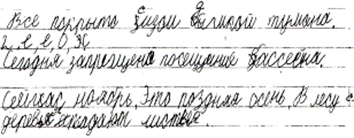 Все покрыто сизой дымкой тумана.
г, в, в, О, Ж
Сегодня запрещено посещение бассейна.
Сейчас ноябрь. Это поздняя осень. В лесу с
деревьев опадают листья.